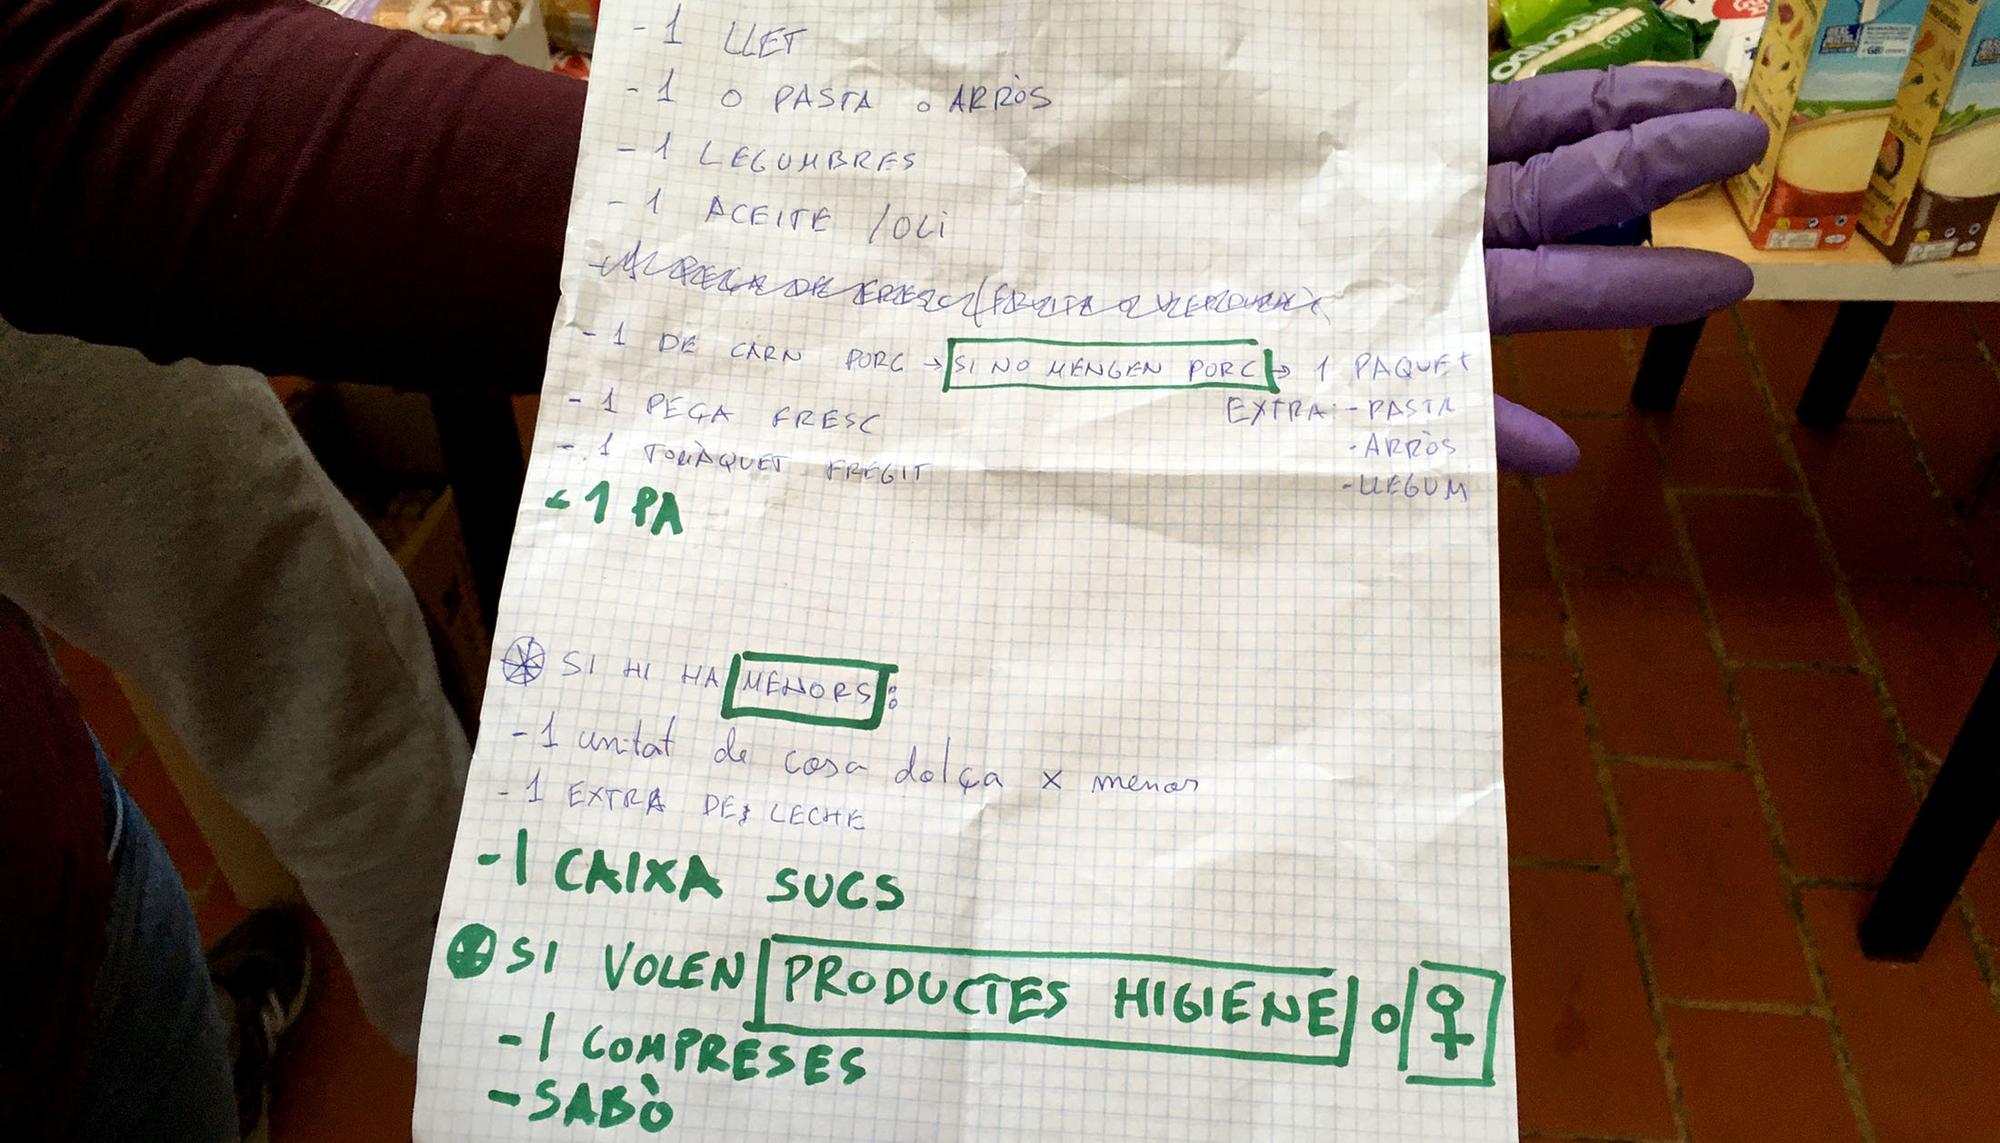 - 1 LLET
- 1 O PASTA O ARRÒS
- 1 LEGUMBRES
- 1 ACEITE / OLI
- 1 PEÇA DE FRESC (FRUITA O VERDURA)
- 1 DE CARN PORC → SI NO MENGEN PORC → 1 PAQUET
EXTRA: - PASTA
- ARRÒS
- LLEGUM
- 1 PEÇA FRESC
- 1 TOMÀQUET FREGIT
- 1 PA
SI HI HA MENORS:
- 1 unitat de cosa dolça x menor
- 1 EXTRA DE LECHE
- 1 CAIXA SUCS
SI VOLEN PRODUCTES HIGIENE O ♀
- 1 COMPRESES
- SABÒ
ARRÒS